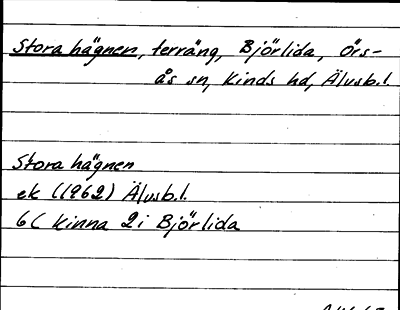 Stora hägnen, terräng, Björlida, Örs-
ås sn, Kinds hd, Älvsb.l.
Stora hägnen
ek (1962) Älvsb.l.
6C Kinna 2i Björlida